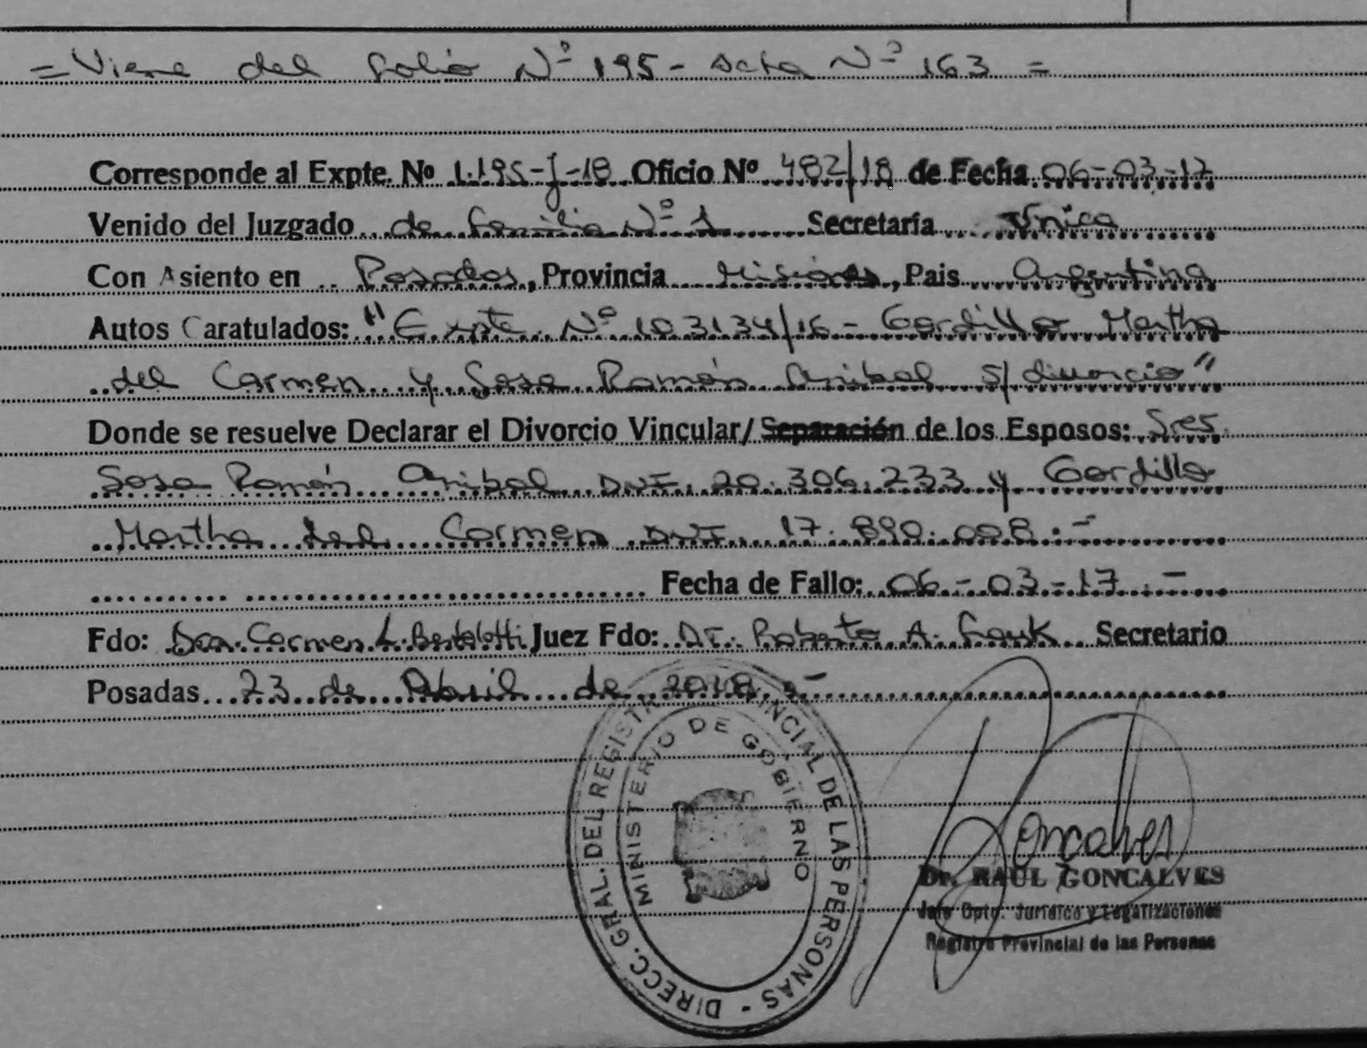 = Viene del folio Nº 195 - Acta Nº 163 =
Corresponde al Expte. Nº 1.195-J-18 Oficio Nº 482/18 de Fecha 06-03-17
Venido del Juzgado de Familia Nº 1 Secretaría Única
Con Asiento en Posadas, Provincia Misiones, Pais Argentina
Autos Caratulados: "Expte. Nº 103134/16 - Gordillo Martha
del Carmen y Sosa Ramón Anibal s/divorcio"
Donde se resuelve Declarar el Divorcio Vincular/ Separación de los Esposos: Sres
Sosa Ramón Anibal DNI. 20.306.233 y Gordillo
Martha del Carmen DNI. 17.890.008.-
Fecha de Fallo: 06-03-17.-
Fdo: Dra. Carmen L. Bertolotti Juez Fdo: Dr. Roberto A. Secretario
Posadas 23 de Abril de 2018.-
DIRECC. GRAL. DEL REGISTRO PROVINCIAL DE LAS PERSONAS -
MINISTERIO DE GOBIERNO
Goncalves
Dr. RAUL GONCALVES
Jefe Dpto. Jurídico y Legalizaciones
Registro Provincial de las Personas